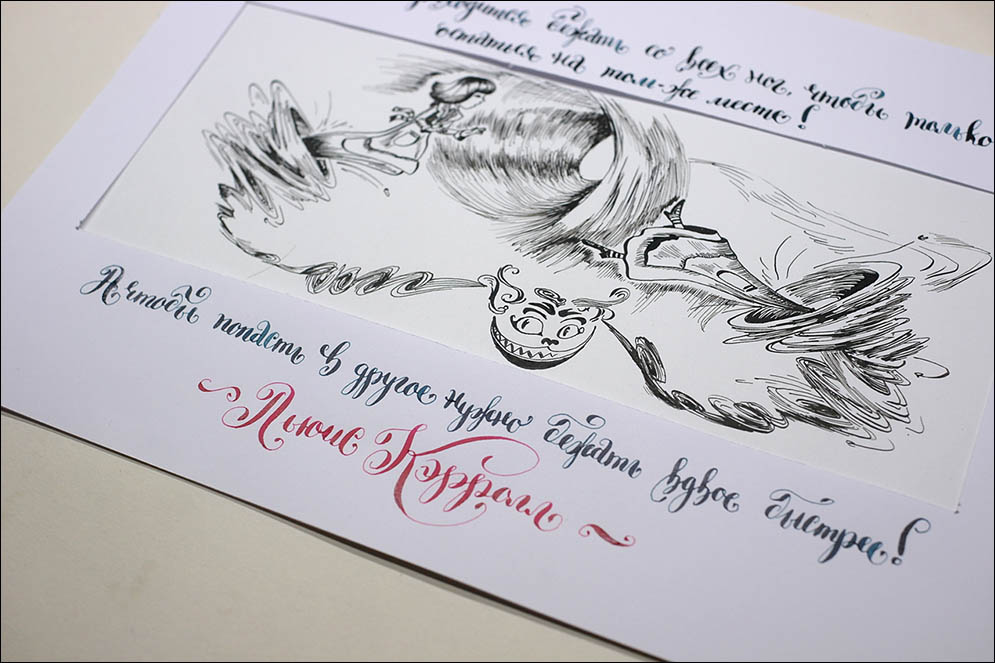 бежать со всех ног, чтобы только
остаться на том-же месте!
А чтобы попасть в другое нужно бежать вдвое быстрее!
Льюис Кэрролл